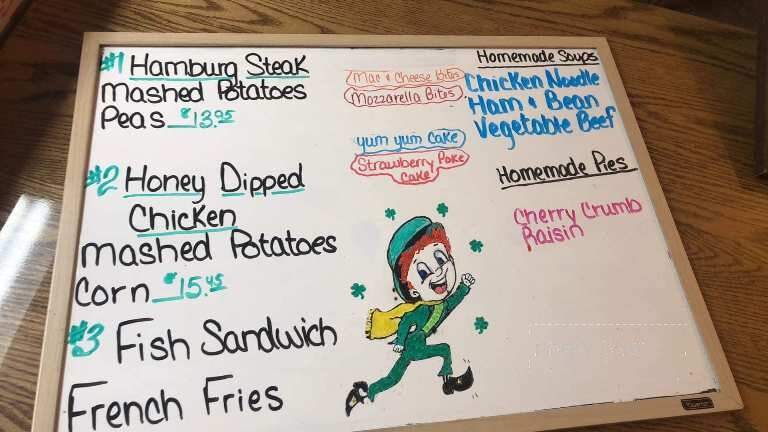 #1 Hamburg Steak
Mashed Potatoes
Peas $13.95
#2 Honey Dipped
Chicken
Mashed Potatoes
Corn $15.45
#3 Fish Sandwich
French Fries
Mac & Cheese Bites
Mozzarella Bites
yum yum Cake
Strawberry Poke
Cake
Homemade Soups
Chicken Noodle
Ham & Bean
Vegetable Beef
Homemade Pies
Cherry Crumb
Raisin